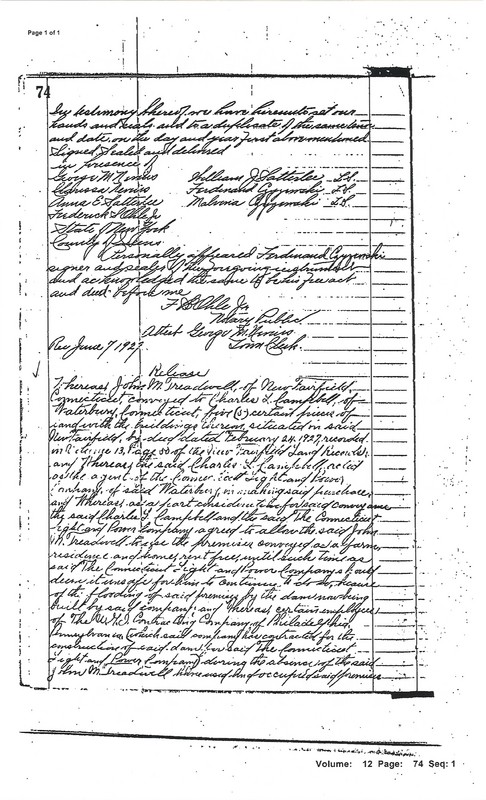 Page 1 of 1
74
In testimony thereof, we have hereunto set our
hands and seals and to a duplicate of the same tenor
and date, on the day and year first above mentioned.
Signed Sealed and delivered
in presence of
George M. Nevius William J. Satterlee L.S.
Clarissa Nevius Ferdinand L.S.
Anna E. Satterlee L.S.
Frederick S. Ohle Jr.
State of New York
County of Queens
Personally appeared Ferdinand
signer and sealer of the foregoing instrument
and acknowledged the same to be his free act
and deed before me
F. S. Ohle Jr.
Notary Public
Attest George M. Nevius
Town Clerk.
Rec June 7 1927
Release
Whereas John M. Treadwell, of New Fairfield,
Connecticut, conveyed to Charles L. Campbell, of
Waterbury, Connecticut, five (5) certain pieces of
land with the buildings thereon, situated in said
New Fairfield, by deed dated February 24, 1927, recorded
in Volume 13, Page of the New Fairfield Land Records,
and Whereas, the said Charles L. Campbell, acted
as the agent of the Connecticut Light and Power
Company, of said Waterbury, in making said purchase,
and Whereas, as a part consideration for said conveyance
the said Charles L. Campbell and the said The Connecticut
Light and Power Company agreed to allow the said John
M. Treadwell to use the premises conveyed as a farm,
residence and home, rent free, until such time as
said The Connecticut Light and Power Company should
deem it unsafe for him to continue to do so, because
of the flooding of said premises by the dam now being
built by said company; and Whereas certain employees
of The U.G.I. Contracting Company of Philadelphia,
Pennsylvania, (which said company has contracted for the
construction of said dam for said The Connecticut
Light and Power Company) during the absence of the said
John M. Treadwell have used and occupied said premises
Volume: 12 Page: 74 Seq: 1